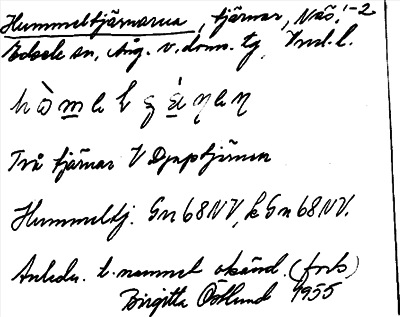 Hummeltjärnarna, tjärnar, Näs! -2
Edsele sn, Ång. v. doms. tg, Ind. l.
Två tjärnar V Djuptjärnen
Hummeltj. Gn 68 NV, k Gn 68 NV.
Anledn. t. namnet okänd. (forts)
Birgitta Östlund 1955